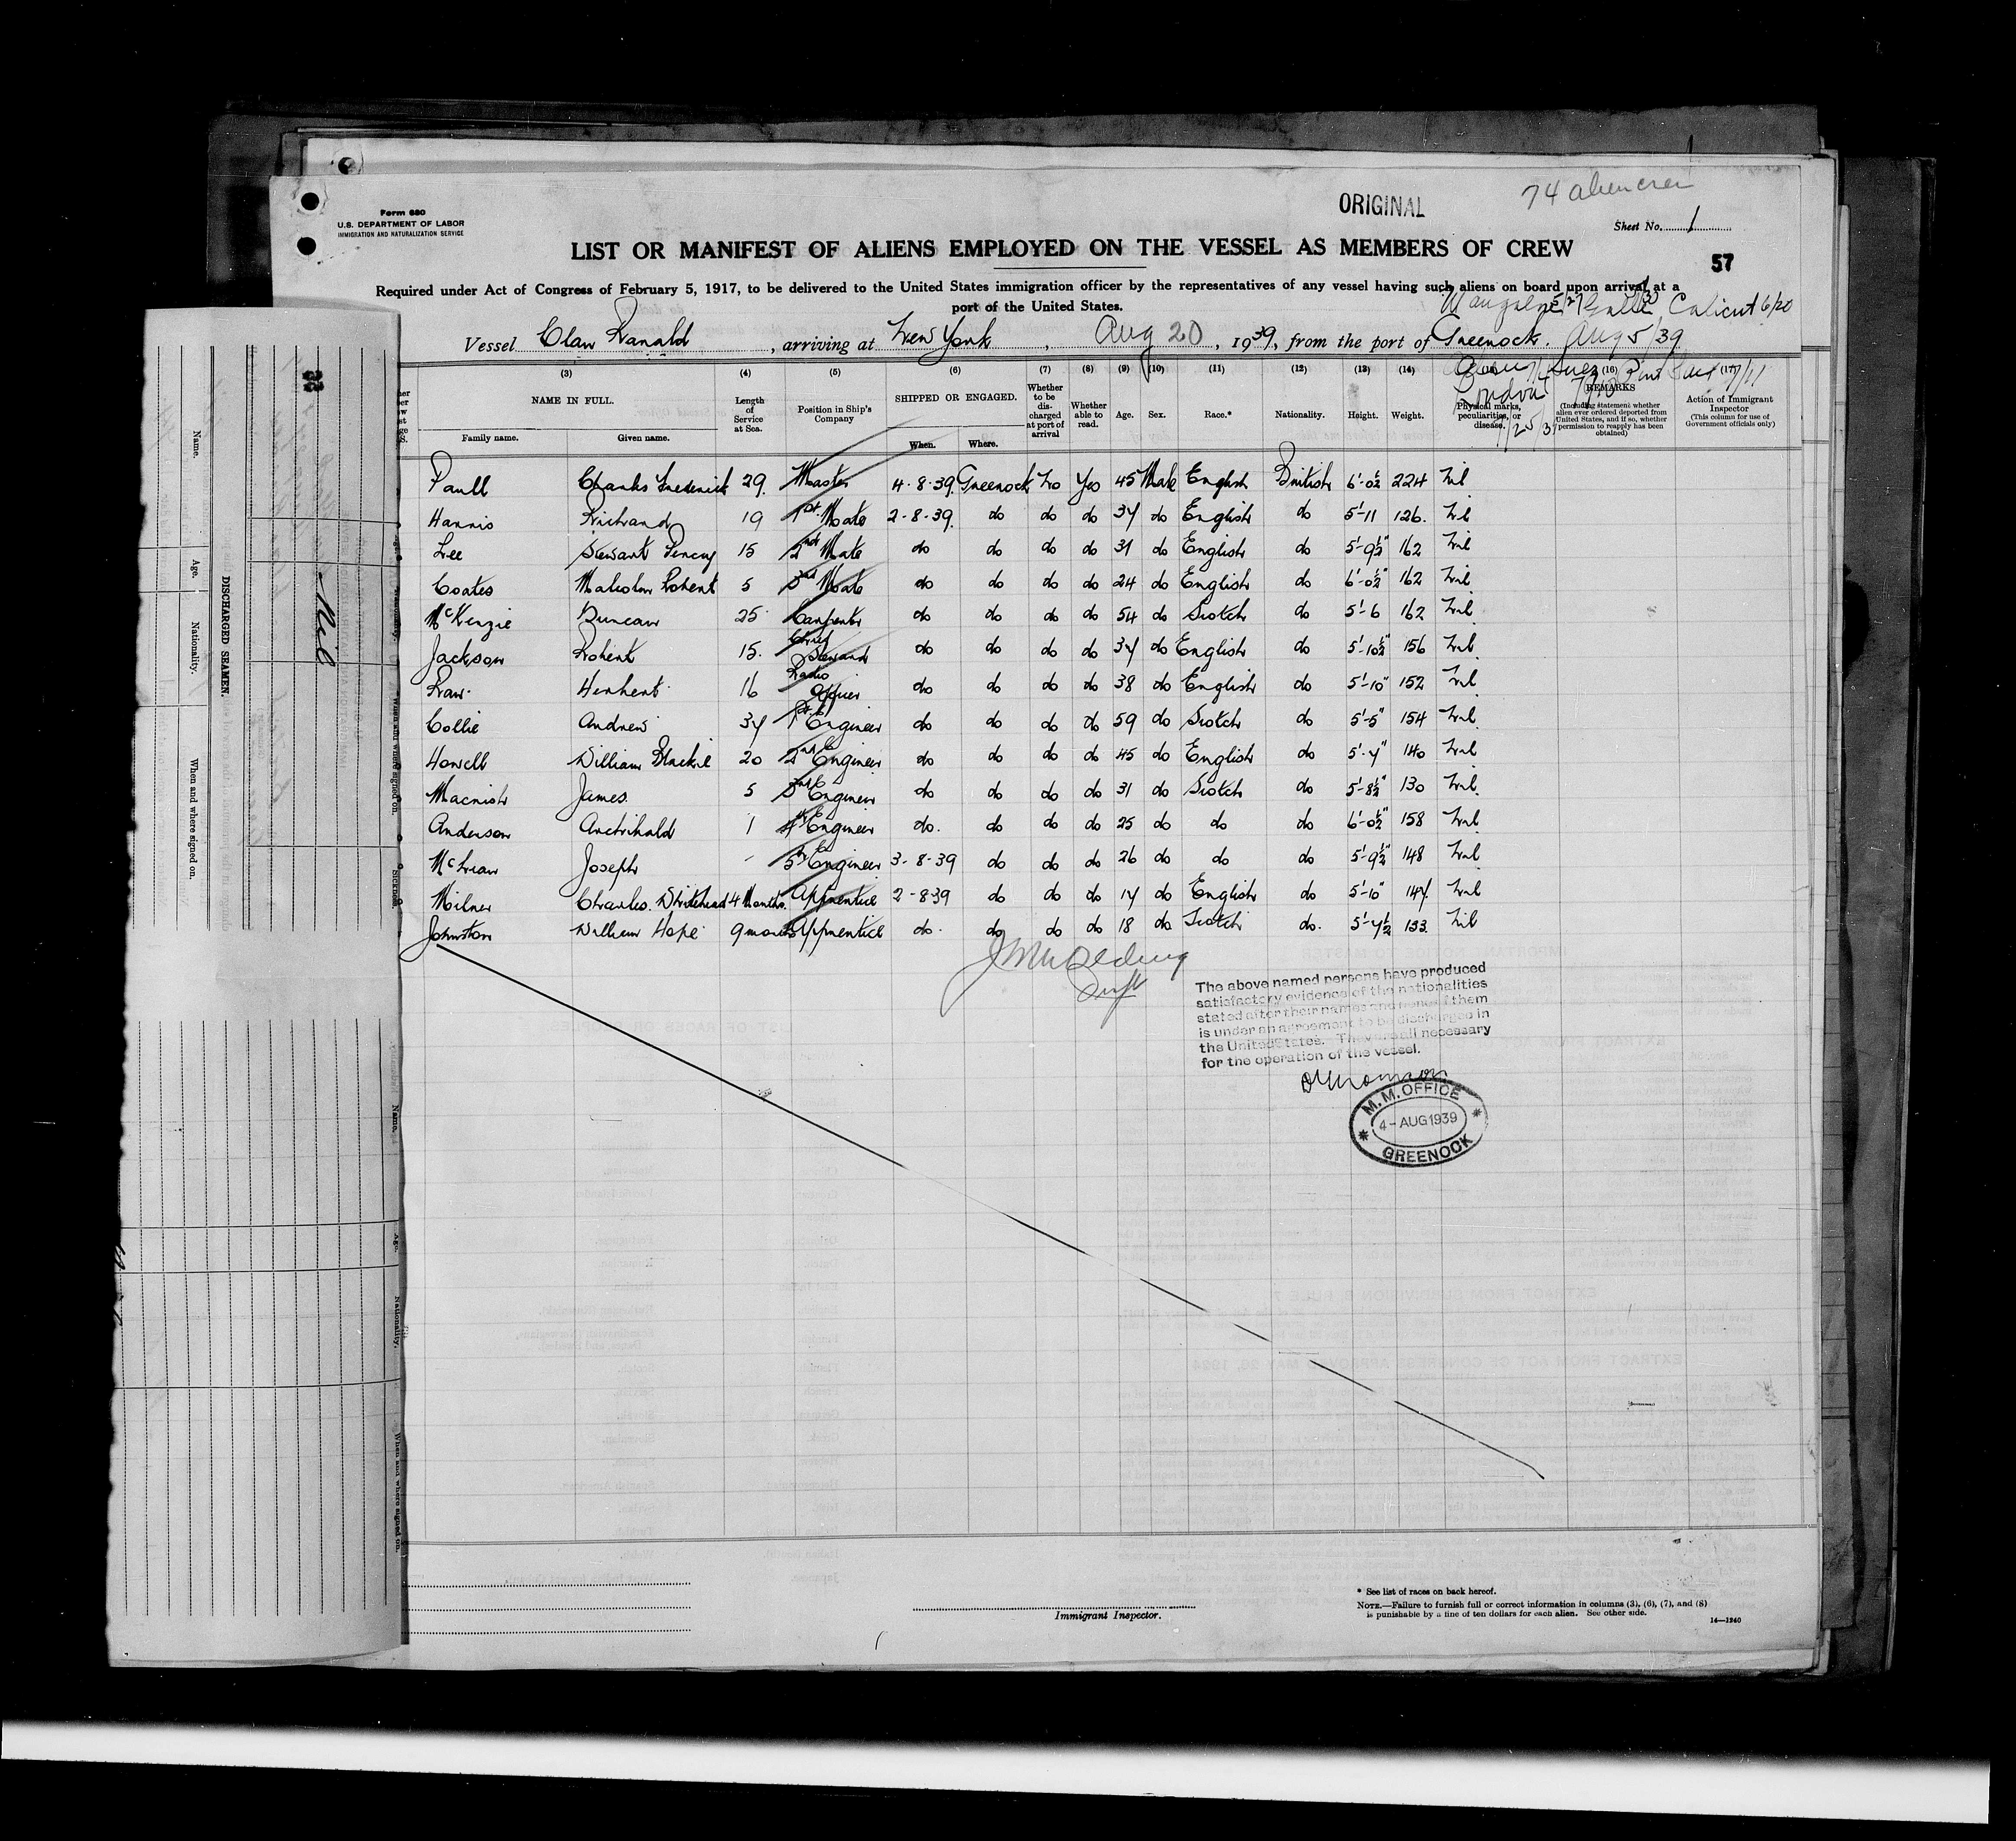 74 alien crew
ORIGINAL
Form 680
U.S. DEPARTMENT OF LABOR
IMMIGRATION AND NATURALIZATION SERVICE
Sheet No. 1
LIST OR MANIFEST OF ALIENS EMPLOYED ON THE VESSEL AS MEMBERS OF CREW
57
Required under Act of Congress of February 5, 1917, to be delivered to the United States immigration officer by the representatives of any vessel having such aliens on board upon arrival at a
port of the United States.
Calicut 6/20
Vessel Clan Ranald, arriving at New York, Aug 20, 1939, from the port of Greenock. Aug 5/39
London
(3) (4) (5) (6) (7) (8) (9) (10) (11) (12) (13) (14) (16) (17)
NAME IN FULL. Family name. Given name.
Length of Service at Sea.
Position in Ship's Company
SHIPPED OR ENGAGED. When. Where.
Whether to be discharged at port of arrival
Whether able to read.
Age. Sex. Race.* Nationality. Height. Weight.
Physical marks, peculiarities, or disease.
REMARKS
(Including statement whether alien ever ordered deported from United States, and if so, whether permission to reapply has been obtained)
Action of Immigrant Inspector
(This column for use of Government officials only)
Paull Charles Frederick 29. Master 4-8-39. Greenock No Yes 45 Male English British 6'-0½ 224 Nil
Harris Richard 19 1st Mate 2-8-39. do do do 37 do English do 5'-11 126. Nil
Lee Stewart Percy 15 2nd Mate do do do do 31 do English do 5'-9½" 162 Nil
Coates Malcolm Robert 5 3rd Mate do do do do 24 do English do 6'-0½" 162 Nil
McKenzie Duncan 25 Carpenter do do do do 54 do Scotch do 5'-6 162 Nil
Jackson Robert 15. Chief Steward do do do do 37 do English do 5'-10½" 156 Nil
Raw Herbert 16 Radio Officer do do do do 38 do English do 5'-10" 152 Nil
Collie Andrew 37 1st Engineer do do do do 59 do Scotch do 5'-5" 154 Nil
Howell William Blackie 20 2nd Engineer do do do do 45 do English do 5'-7" 140 Nil
Macnish James. 5 3rd Engineer do do do do 31 do Scotch do 5'-8½" 130 Nil
Anderson Archibald 1 4th Engineer do. do do do 25 do do do 6'-0½" 158 Nil
McLean Joseph - 5th Engineer 3-8-39 do do do 26 do do do 5'-9½" 148 Nil
Milner Charles Whitehead 4 Months. Apprentice 2-8-39 do do do 17 do English do 5'-10" 147. Nil
Johnston William Hope 9 months Apprentice do. do do do 18 do Scotch do. 5'-7½ 133. Nil
The above named persons have produced
satisfactory evidence of the nationalities
stated after their names and none of them
is under an agreement to be discharged in
the United States. They are all necessary
for the operation of the vessel.
M.M. OFFICE
4-AUG 1939
GREENOCK
Immigrant Inspector.
* See list of races on back hereof.
NOTE.—Failure to furnish full or correct information in columns (3), (6), (7), and (8)
is punishable by a fine of ten dollars for each alien. See other side.
14—1240
Name.
Age.
Nationality.
When and where signed on.
DISCHARGED SEAMEN
Nil
Name.
Age.
Nationality.
When and where signed on.